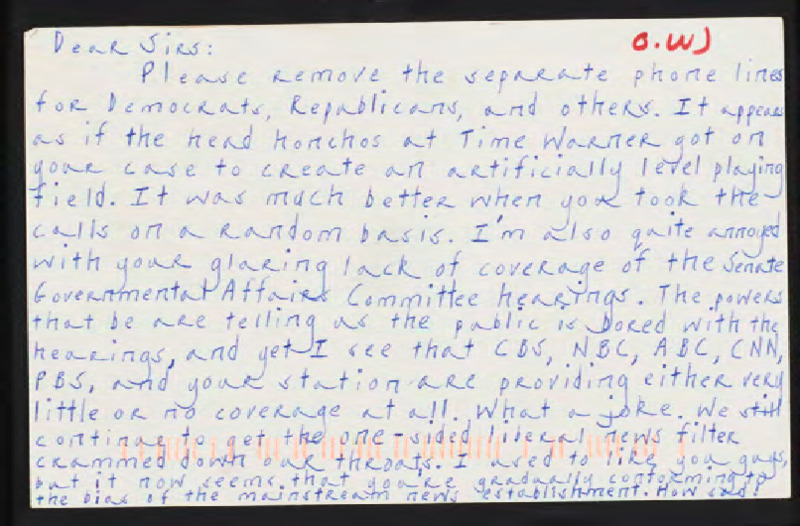 Dear Sirs:
O.W)
Please remove the separate phone lines
for Democrats, Republicans, and others. It appears
as if the head honchos at Time Warner got on
your case to create an artificially level playing
field. It was much better when you took the
calls on a random basis. I'm also quite annoyed
with your glaring lack of coverage of the Senate
Governmental Affairs Committee hearings. The powers
that be are telling us the public is bored with the
hearings, and yet I see that CBS, NBC, ABC, CNN,
PBS, and your station are providing either very
little or no coverage at all. What a joke. We still
continue to get the one-sided liberal news filter
crammed down our throats. I used to like you guys,
but it now seems that you're gradually conforming to
the bias of the mainstream news establishment. How sad!